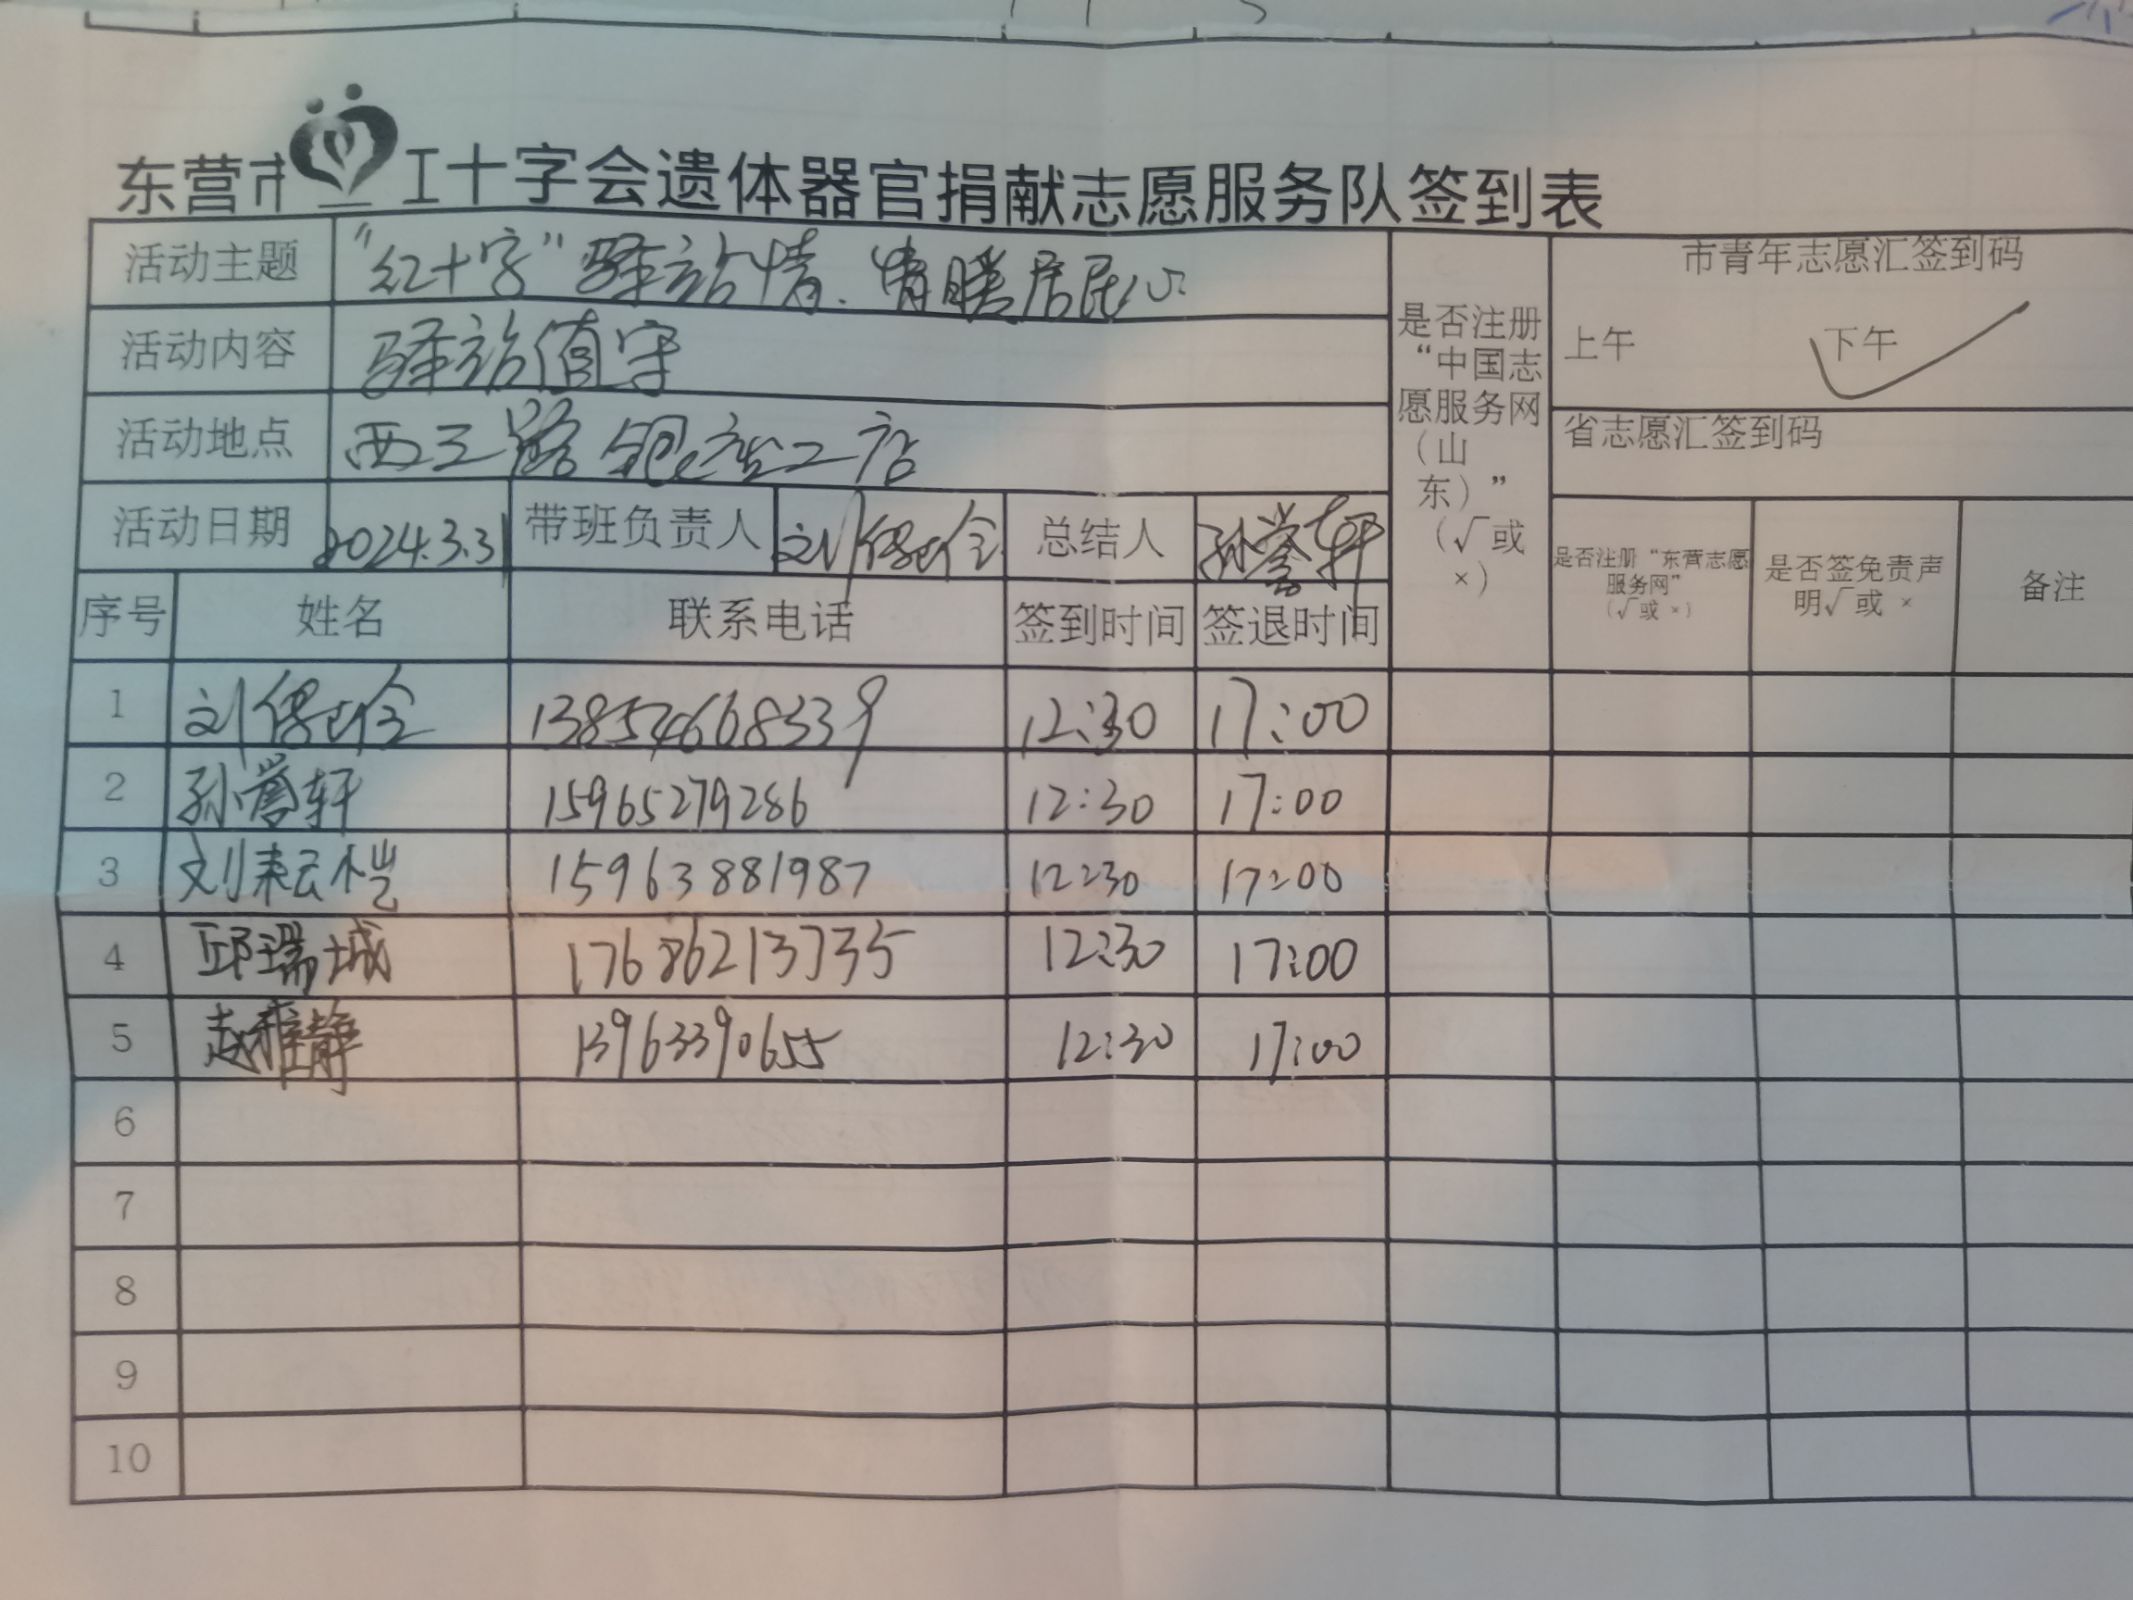 东营市红十字会遗体器官捐献志愿服务队签到表
活动主题 “红十字”驿站情.情暖居民心
市青年志愿汇签到码
上午 下午 √
活动内容 驿站值守
活动地点 西三路
省志愿汇签到码
是否注册“中国志愿服务网(山东)”(√或×)
活动日期 2024.3.31 带班负责人 刘 总结人 孙誉轩
是否注册“东营志愿服务网”(√或×) 是否签免责声明√或× 备注
序号 姓名 联系电话 签到时间 签退时间
1 刘 13854668339 12:30 17:00
2 孙誉轩 15965279286 12:30 17:00
3 刘耘恺 15963881987 12:30 17:00
4 邱瑞城 17686213735 12:30 17:00
5 赵雅静 13963390655 12:30 17:00
6
7
8
9
10